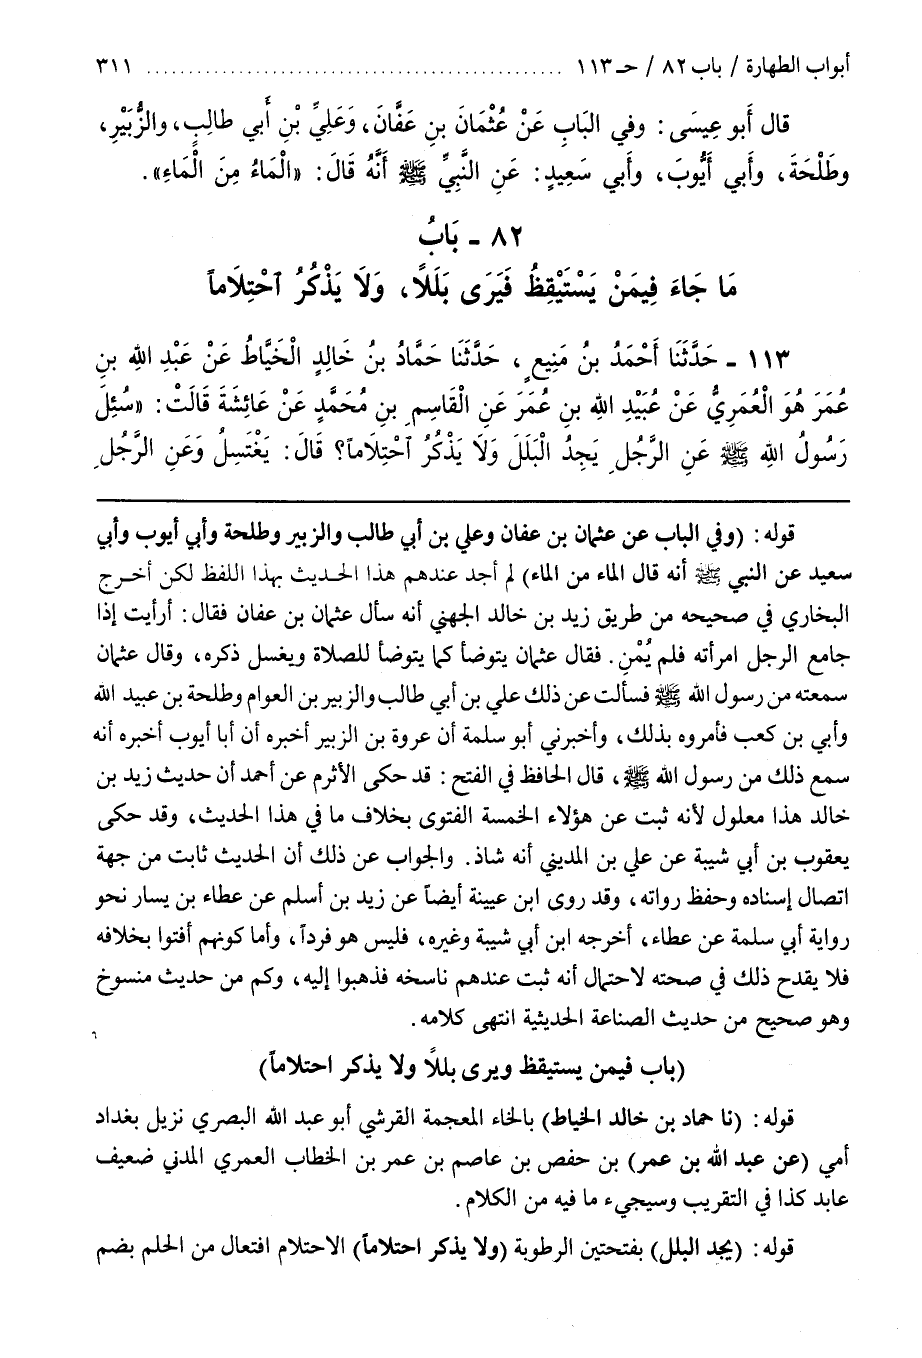 أبواب الطهارة / باب ٨٢ / حـ ١١٣ ............................................ ٣١١
قال أَبو عِيسَى: وفي البَابِ عَنْ عُثْمَانَ بنِ عَفَّانَ، وَعَلِيِّ بْنِ أَبي طالِبٍ، والزُّبَيْرِ،
وَطَلْحَةَ، وأَبي أَيُّوبَ، وأَبي سَعِيدٍ: عَنِ النَّبيِّ ﷺ أَنَّهُ قَالَ: «الْمَاءُ مِنَ الْمَاءِ».
٨٢ - بَابُ
مَا جَاءَ فِيمَنْ يَسْتَيْقِظُ فَيَرَى بَلَلًا، وَلَا يَذْكُرُ ٱحْتِلَاماً
١١٣ - حَدَّثَنَا أَحْمَدُ بنُ مَنِيعٍ، حَدَّثَنَا حَمَّادُ بنُ خَالِدٍ الْخَيَّاطُ عَنْ عَبْدِ اللهِ بنِ
عُمَرَ هُوَ الْعُمَرِيُّ عَنْ عُبَيْدِ اللهِ بنِ عُمَرَ عَنِ الْقَاسِمِ بنِ مُحَمَّدٍ عَنْ عَائِشَةَ قَالَتْ: «سُئِلَ
رَسُولُ اللهِ ﷺ عَنِ الرَّجُلِ يَجِدُ الْبَلَلَ وَلَا يَذْكُرُ ٱحْتِلَاماً؟ قَالَ: يَغْتَسِلُ وَعَنِ الرَّجُلِ
قوله: (وفي الباب عن عثمان بن عفان وعلي بن أبي طالب والزبير وطلحة وأبي أيوب وأبي
سعيد عن النبي ﷺ أنه قال الماء من الماء) لم أجد عندهم هذا الحديث بهذا اللفظ لكن أخرج
البخاري في صحيحه من طريق زيد بن خالد الجهني أنه سأل عثمان بن عفان فقال: أرأيت إذا
جامع الرجل امرأته فلم يُمْنِ. فقال عثمان يتوضأ كما يتوضأ للصلاة ويغسل ذكره، وقال عثمان
سمعته من رسول الله ﷺ فسألت عن ذلك علي بن أبي طالب والزبير بن العوام وطلحة بن عبيد الله
وأبي بن كعب فأمروه بذلك، وأخبرني أبو سلمة أن عروة بن الزبير أخبره أن أبا أيوب أخبره أنه
سمع ذلك من رسول الله ﷺ، قال الحافظ في الفتح: قد حكى الأثرم عن أحمد أن حديث زيد بن
خالد هذا معلول لأنه ثبت عن هؤلاء الخمسة الفتوى بخلاف ما في هذا الحديث، وقد حكى
يعقوب بن أبي شيبة عن علي بن المديني أنه شاذ. والجواب عن ذلك أن الحديث ثابت من جهة
اتصال إسناده وحفظ رواته، وقد روى ابن عيينة أيضاً عن زيد بن أسلم عن عطاء بن يسار نحو
رواية أبي سلمة عن عطاء، أخرجه ابن أبي شيبة وغيره، فليس هو فرداً، وأما كونهم أفتوا بخلافه
فلا يقدح ذلك في صحته لاحتمال أنه ثبت عندهم ناسخه فذهبوا إليه، وكم من حديث منسوخ
وهو صحيح من حديث الصناعة الحديثية انتهى كلامه.
(باب فيمن يستيقظ ويرى بللًا ولا يذكر احتلاماً)
قوله: (نا حماد بن خالد الخياط) بالخاء المعجمة القرشي أبو عبد الله البصري نزيل بغداد
أمي (عن عبد الله بن عمر) بن حفص بن عاصم بن عمر بن الخطاب العمري المدني ضعيف
عابد كذا في التقريب وسيجيء ما فيه من الكلام.
قوله: (يجد البلل) بفتحتين الرطوبة (ولا يذكر احتلاماً) الاحتلام افتعال من الحلم بضم